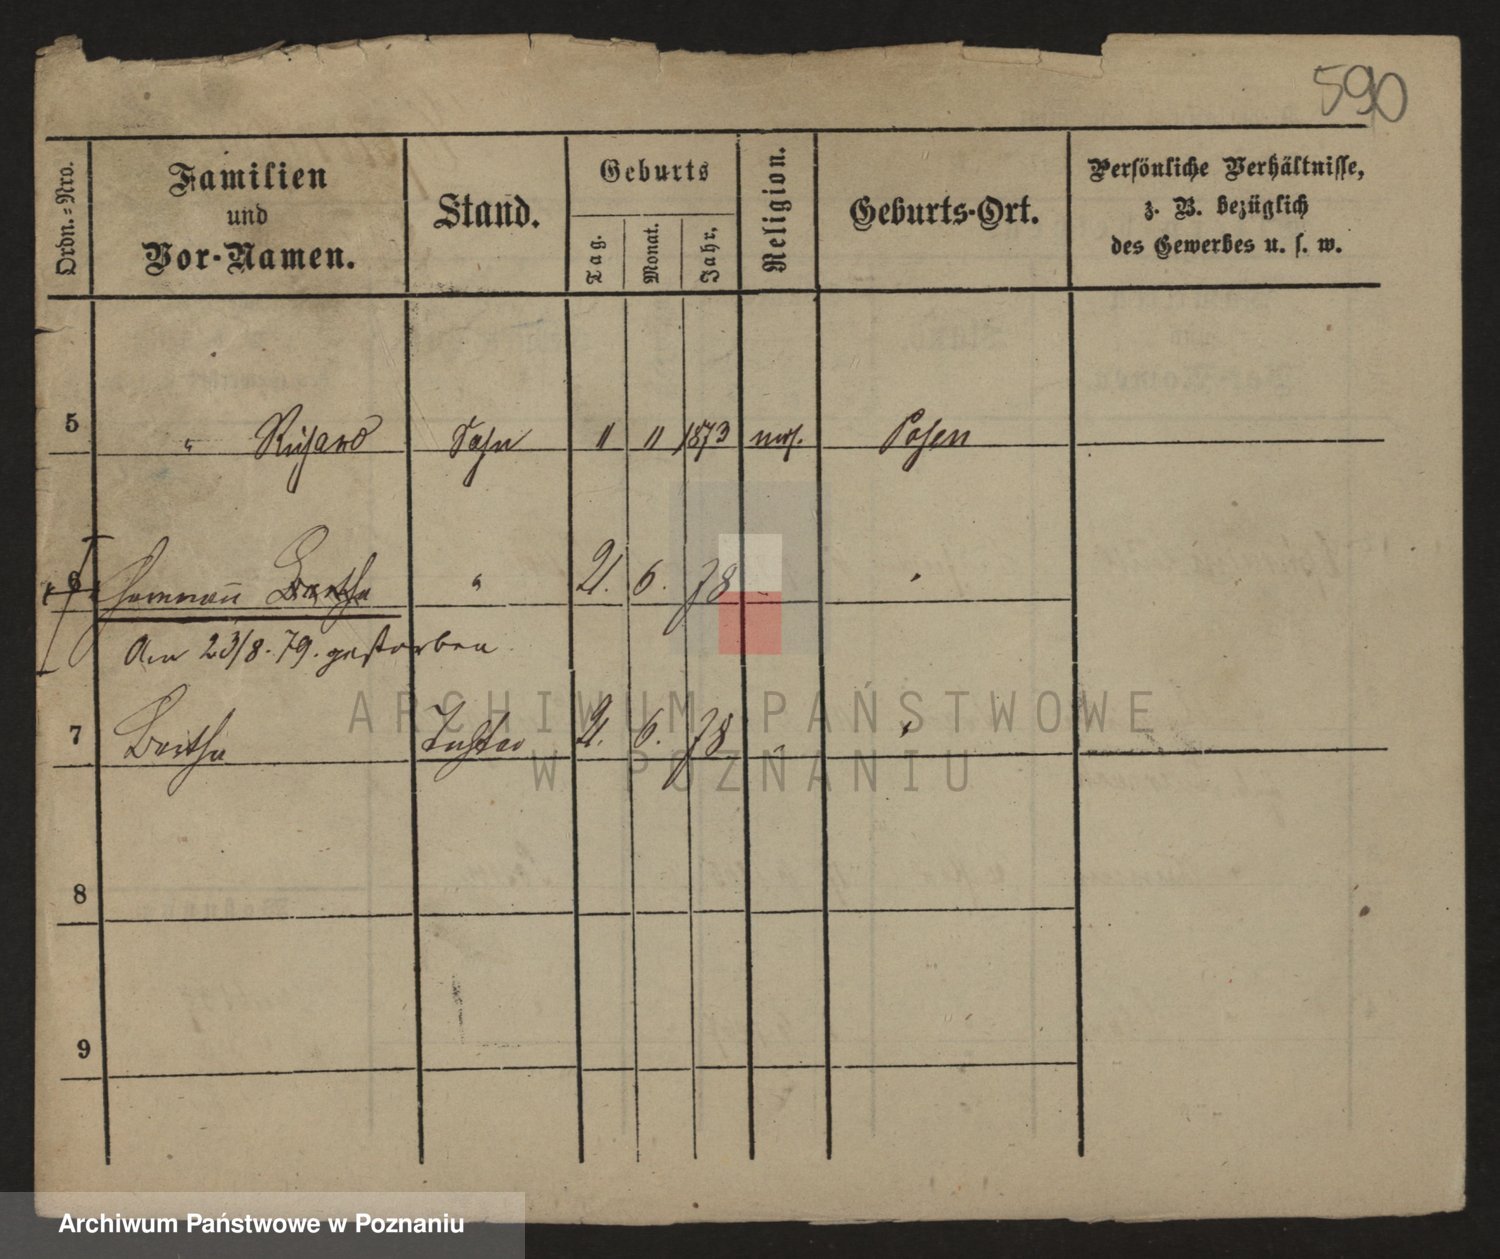 590
Ordn.-Nro.
Familien
und
Vor-Namen.
Stand.
Geburts
Tag.
Monat.
Jahr.
Religion.
Geburts-Ort.
Persönliche Verhältnisse,
z. B. bezüglich
des Gewerbes u. s. w.
5 " Richard Sohn 11 11 1873 mos. Posen
6 Hermann Bertha " 21. 6. 78
Am 23/8. 79. gestorben
7 Bertha Tochter 21. 6. 78
8
9
ARCHIWUM PAŃSTWOWE
W POZNANIU
Archiwum Państwowe w Poznaniu